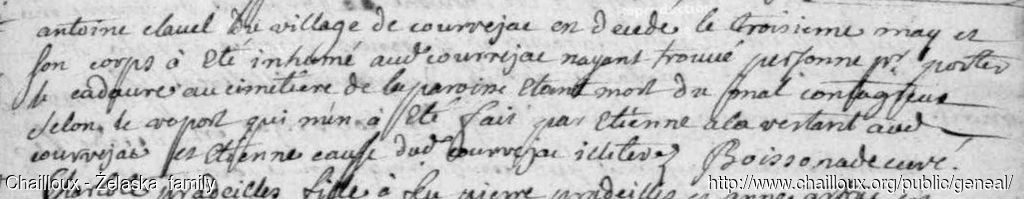 antoine clauel du village de courrejac en decede le troisieme may et
son corps à été inhumé aud courrejac nayant trouué personne pr. porter
le cadaure au cimetiere de la paroine etant mort du mal contagieux
selon le raport qui m'en à été fait par etienne aud
courrejac et etienne dud courrejac illiterez Boissonade curé.
fille à feu pierre pradeilles et anne
Chailloux - Żelaska family
http://www.chailloux.org/public/geneal/